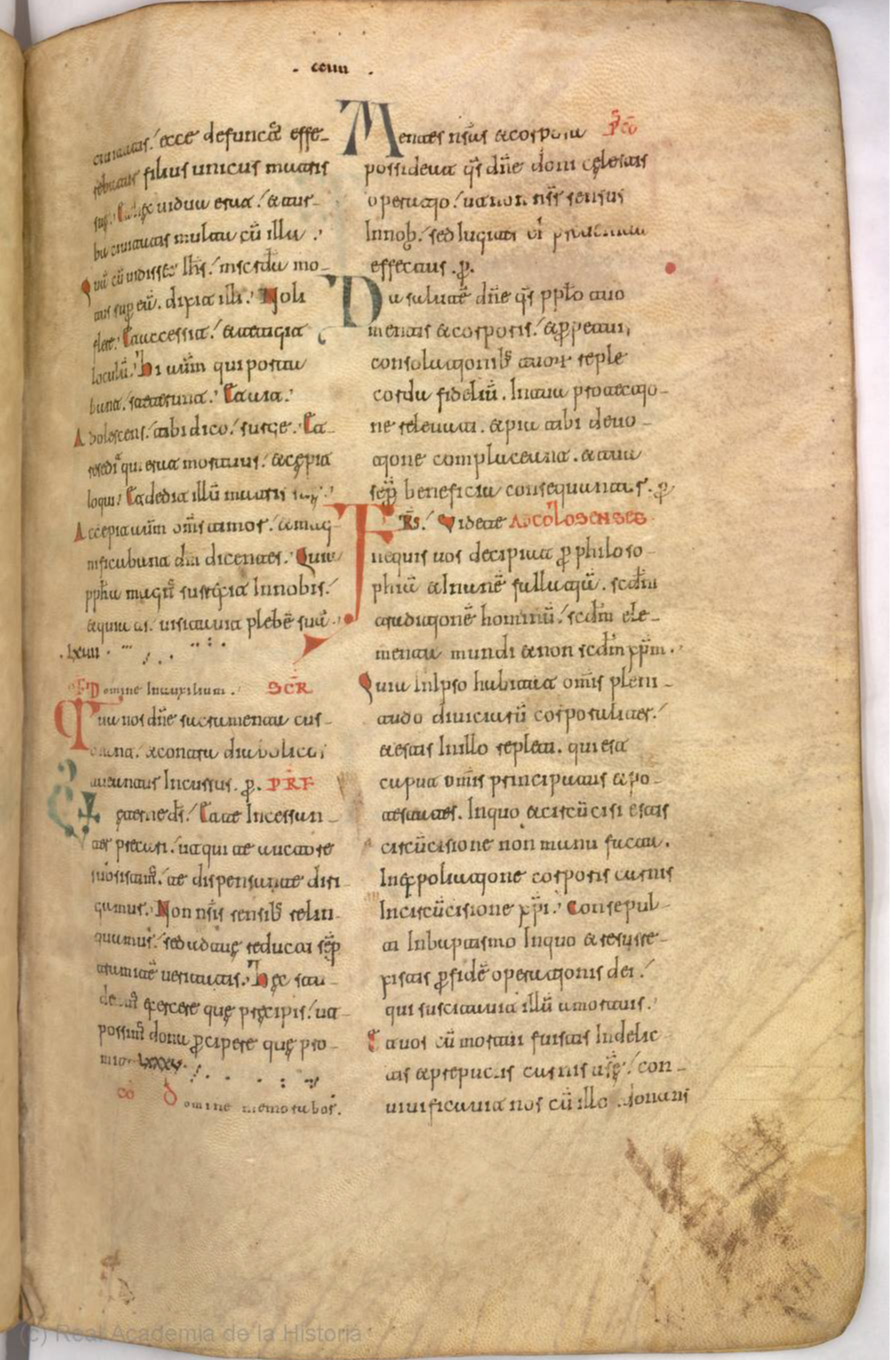 . cciiii .
ciuitatis. ecce defunctꝰ effe-
rebatur filius unicus matris
suę. Et hęc uidua erat. et tur-
ba ciuitatis multa cū illa.
Quā cū uidisset ihs̄. misc̄dia mo-
tus sup eā. dixit illi. Noli
flere. Et accessit. et tetigit
loculū. Hi autm̄ qui porta-
bant. steterunt. Et ait.
Adolescens. tibi dico. surge. Et
resedit qui erat mortuus. et cępit
loqui. Et dedit illū matri suę.
Accepit autm̄ om̄s timor. et mag-
nificabant dm̄ dicentes. Quia
pph̄a magn̄ surrexit in nobis.
et quia ds̄. uisitauit plebē suā.
OF Domine in auxilium. SCR̄
Tua nos dn̄e sacramenta cus-
todiant. et contra diabolicos
tueantur incursus. p̱. PRF
Ęterne ds̄. Et te incessan-
ter precari. ut qui te auctore
subsistim̄. te dispensante diri-
gamur. Non nsīs sensib̄ relin-
quamur. sed ad tuę reducti sep̄
tramitē ueritatis. hęc stu-
deam̄ exercere quę pręcipis. ut
possim̄ dona p̱cipere quę pro-
mittis.
co Domine memorabor.
Mentes nsās et corpora P̄cō
possideat qs̄ dn̄e doni cęlestis
operatio. ut non nsr̄ sensus
in nob̄. sed iugiter eī preueniat
effectus. p̱.
Da salutē dn̄e qs̄ pplo tuo
mentis et corporis. et p̱petuis
consolationib̄ tuor̄ reple
corda fideliū. ut tua protectio-
ne releuati. et pia tibi deuo-
tione complaceant. et tua
sep̄ beneficia consequantur. p̱
FR̄S. Videte AD COLOSENSES
ne quis uos decipiat p̱ philoso-
phiā et inanē fallatiā. scdm̄
traditionē hominū. scdm̄ ele-
menta mundi et non scdm̄ xpm̄.
Quia in ipso habitat om̄is pleni-
tudo diuinitatis corporaliter.
et estis in illo repleti. qui est
caput om̄is principatus et po-
testatis. In quo et circūcisi estis
circūcisione non manu facta.
In expoliatione corporis carnis
In circūcisione xpī. Consepul-
ti In baptismo In quo et resurre-
xistis p̱ fidē operationis dei.
qui suscitauit illū a mortuis.
Et uos cū mortui fuistis In delic-
tis et prepucīs carnis ursę. con-
uiuificauit nos cū illo. donans
(c) Real Academia de la Historia